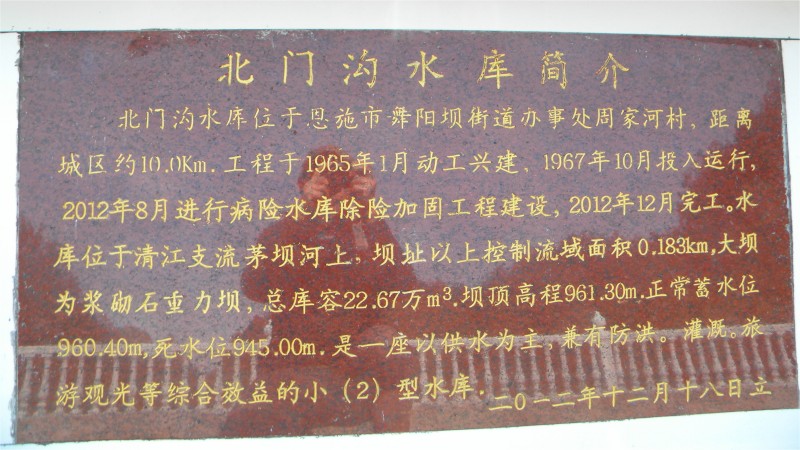 北门沟水库简介
北门沟水库位于恩施市舞阳坝街道办事处周家河村，距离
城区约10.0Km.工程于1965年1月动工兴建、1967年10月投入运行,
2012年8月进行病险水库除险加固工程建设，2012年12月完工。水
库位于清江支流茅坝河上，坝址以上控制流域面积0.183km,大坝
为浆砌石重力坝，总库容22.67万m³.坝顶高程961.30m.正常蓄水位
960.40m,死水位945.00m.是一座以供水为主，兼有防洪。灌溉。旅
游观光等综合效益的小（2）型水库.
二0一二年十二月十八日立